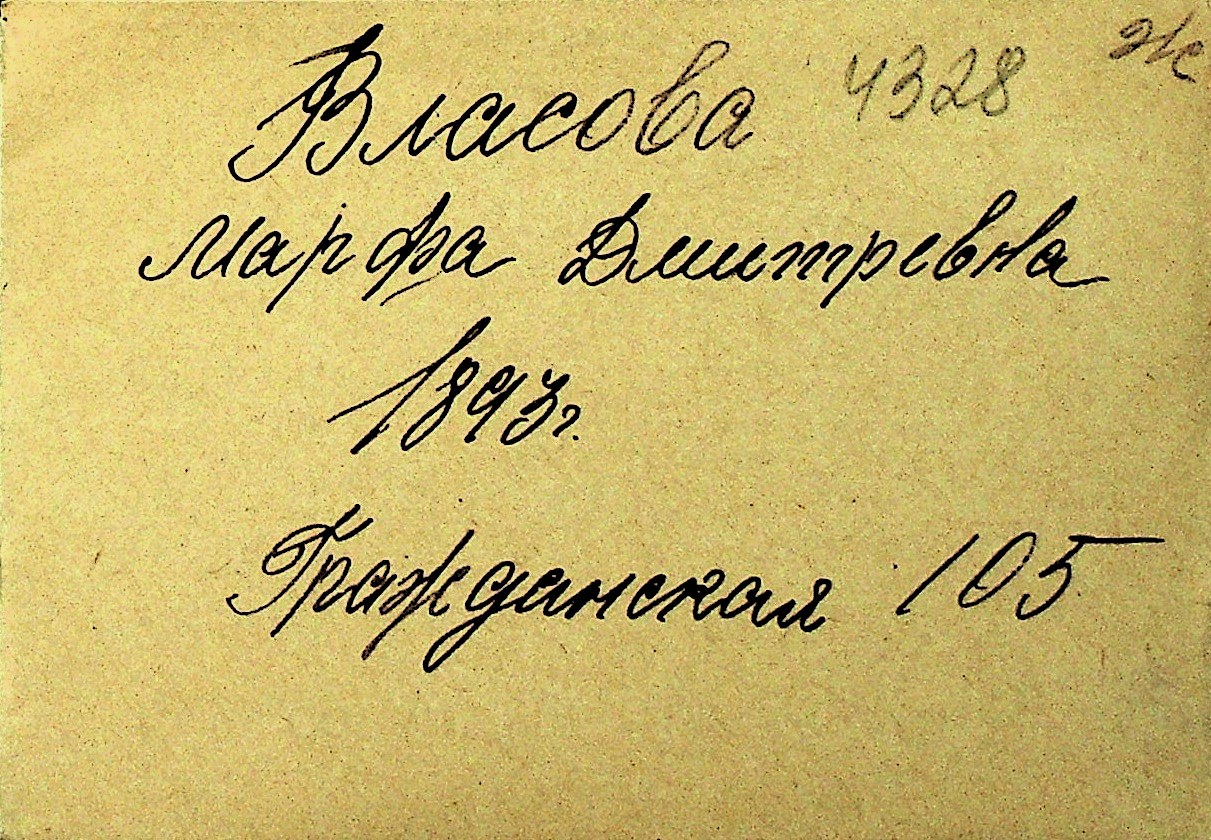 Власова 4328 ж
Марфа Дмитревна
1893г.
Гражданская 105